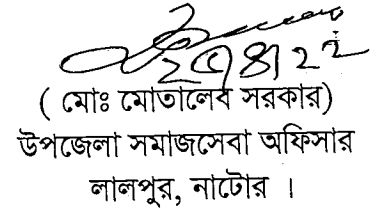 ( মোঃ মোতালেব সরকার)
উপজেলা সমাজসেবা অফিসার
লালপুর, নাটোর ।